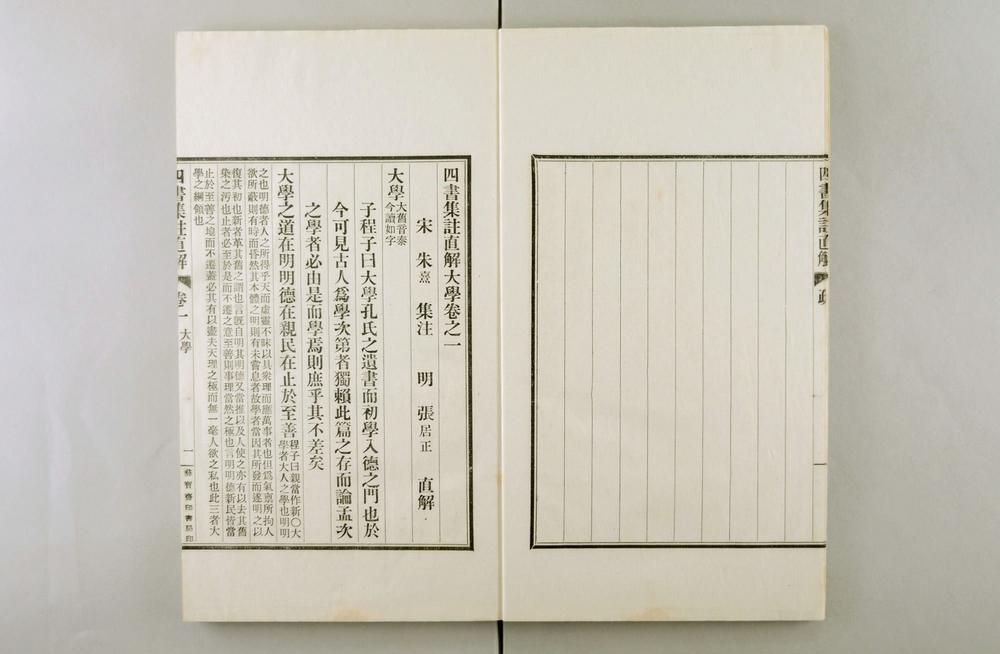 四書集註直解 疏
四書集註直解大學卷之一
宋 朱熹 集注 明 張居正 直解
大學大舊音泰
今讀如字
子程子曰大學孔氏之遺書而初學入德之門也於
今可見古人爲學次第者獨賴此篇之存而論孟次
之學者必由是而學焉則庶乎其不差矣
大學之道在明明德在親民在止於至善程子曰親當作新〇大
學者大人之學也明明
之也明德者人之所得乎天而虛靈不昧以具衆理而應萬事者也但爲氣禀所拘人
欲所蔽則有時而昏然其本體之明則有未嘗息者故學者當因其所發而遂明之以
復其初也新者革其舊之謂也言旣自明其明德又當推以及人使之亦有以去其舊
染之污也止者必至於是而不遷之意至善則事理當然之極也言明明德新民皆當
止於至善之地而不遷蓋必其有以盡夫天理之極而無一毫人欲之私也此三者大
學之綱領也
四書集註直解 卷一 大學 一 齋印書局印